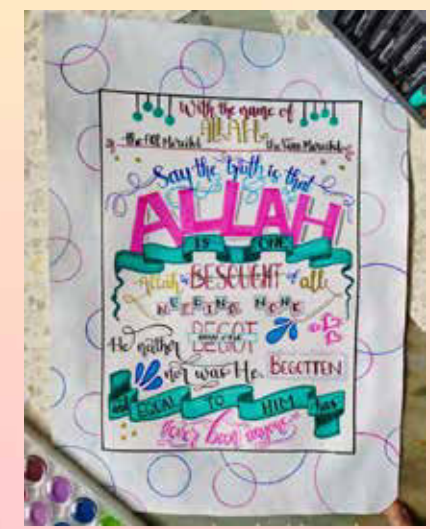 With the name of
ALLAH
the All Merciful the Very Merciful
Say the truth is that
ALLAH
IS ONE
Allah is BESOUGHT of all
NEEDING NONE
He neither BEGOT
nor was He BEGOTTEN
and EQUAL TO HIM has
never been anyone